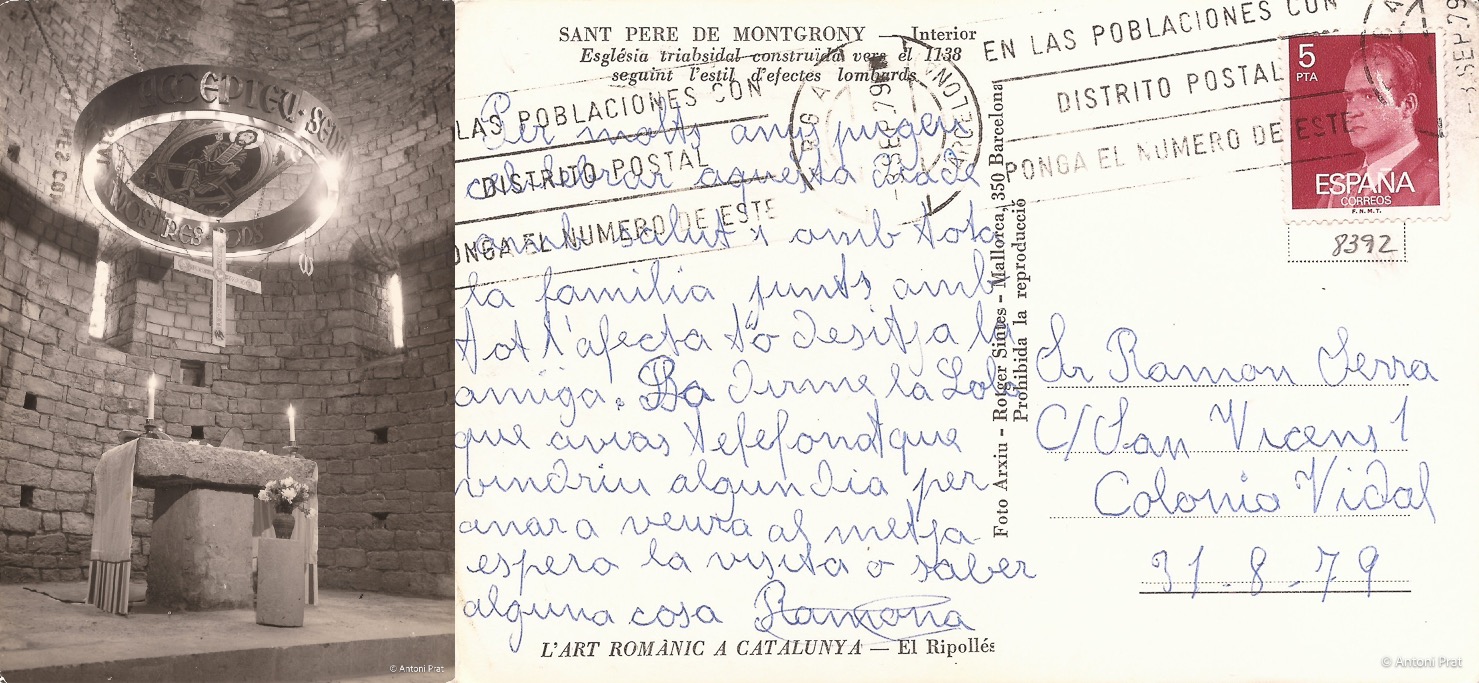 ACCEPTEU · SENYOR
NOSTRES DONS
© Antoni Prat
SANT PERE DE MONTGRONY — Interior
Església triabsidal construïda vers el 1138
seguint l'estil d'efectes lombards
EN LAS POBLACIONES CON
DISTRITO POSTAL
PONGA EL NUMERO DE ESTE
LAS POBLACIONES CON
DISTRITO POSTAL
ONGA EL NUMERO DE ESTE
BARCELONA
3 SEP. 79
5
PTA
ESPAÑA
CORREOS
F.N.M.T.
8392
Per molts anys pugeu
celebrar aquesta diada
amb salut i amb tota
la familia junts amb
tot l'afecta t'o desitja la
amiga. Ba dirme la Lola
que avias telefonat que
vindriu algun dia per
anar a veura al metja
espero la visita o saber
alguna cosa Ramona
Foto Arxiu - Rotger Sintes - Mallorca, 350 Barcelona
Prohibida la reproducció
Sr Ramon Serra
C/ San Vicens 1
Colonia Vidal
31-8-79
L'ART ROMÀNIC A CATALUNYA — El Ripollés
© Antoni Prat